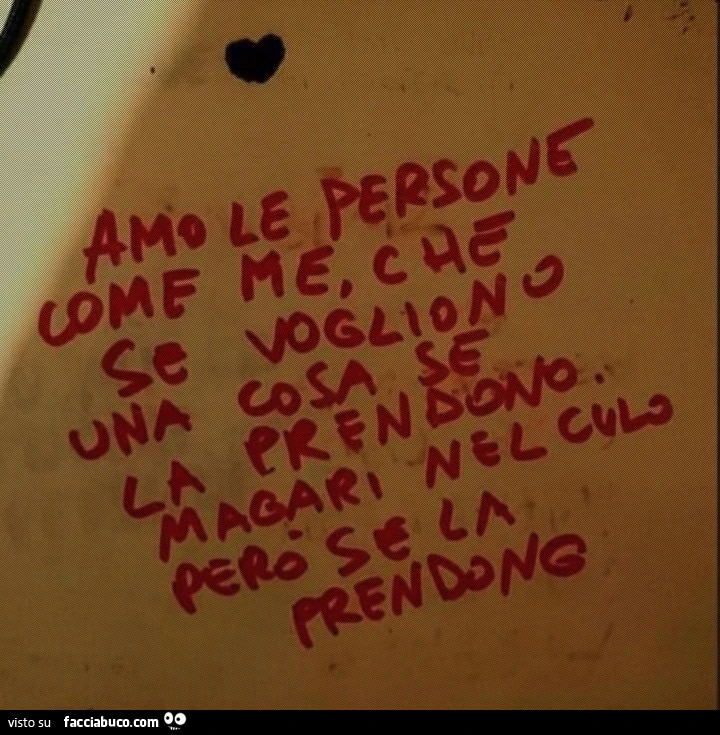 AMO LE PERSONE
COME ME, CHE
SE VOGLIONO
UNA COSA SE
LA PRENDONO.
MAGARI NEL CULO
PERÒ SE LA
PRENDONO
visto su facciabuco.com